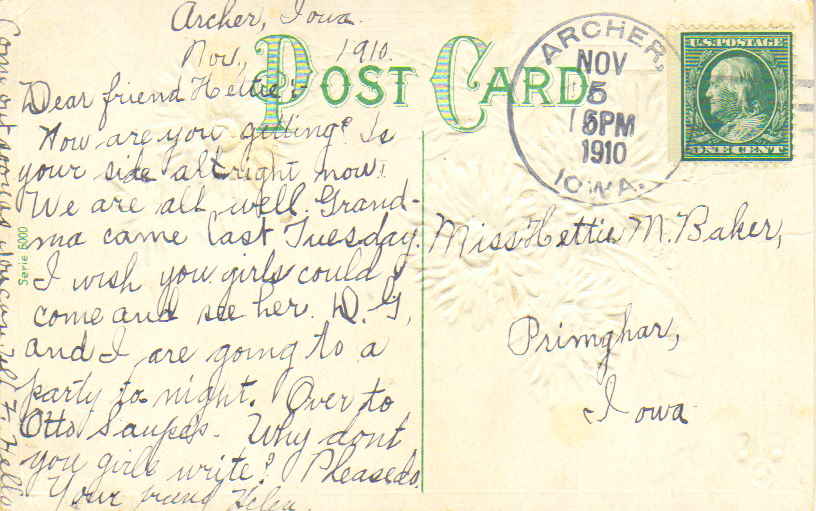 Archer, Iowa.
Nov., 1910.
POST CARD
Dear friend Hettie:-
How are you getting? Is
your side alright now.
We are all well. Grand-
ma came last Tuesday.
I wish you girls could
come and see her. D. G.
and I are going to a
party to night. Over to
Otto Saupes. Why dont
you girls write? Please do.
Your friend Helen.
Come out as soon as you can.
Serie 6000
ARCHER,
NOV
5
5PM
1910
IOWA.
U.S. POSTAGE
ONE CENT
Miss Hettie M. Baker,
Primghar,
Iowa